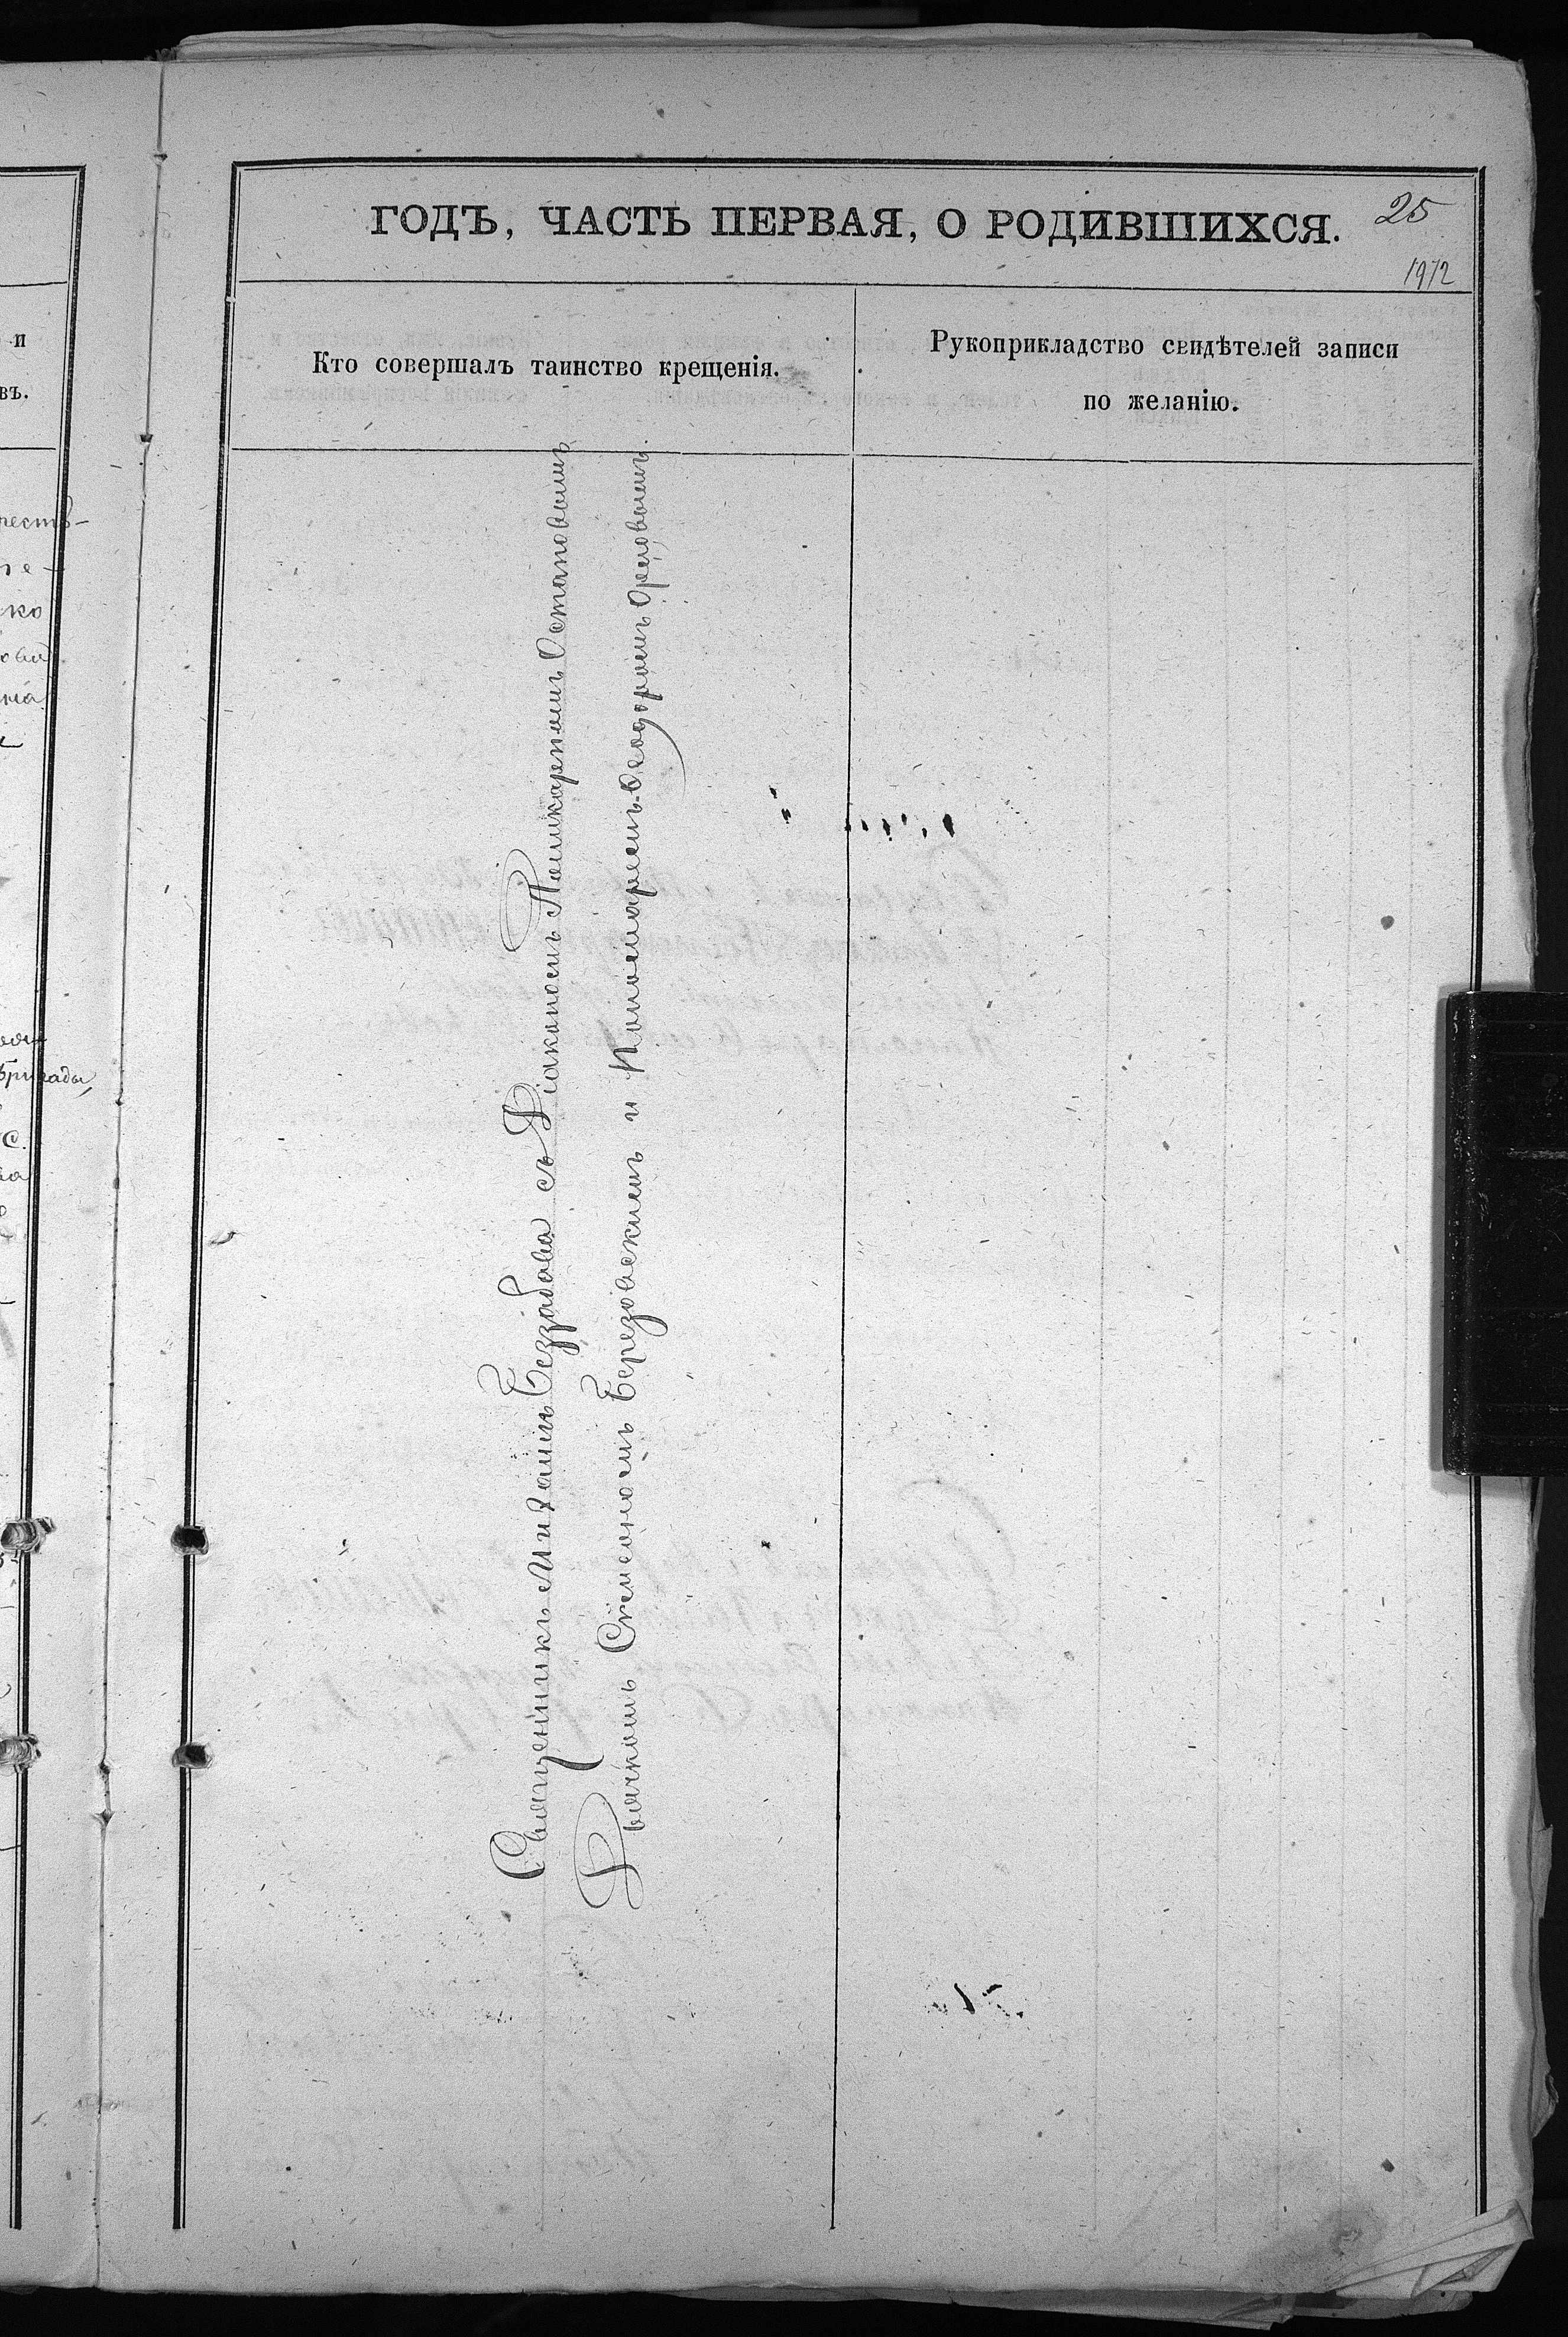 ГОДЪ, ЧАСТЬ ПЕРВАЯ, О РОДИВШИХСЯ.
25
1972
Кто совершалъ таинство крещенія.
Рукоприкладство свидѣтелей записи
по желанію.
Священникъ Михаилъ Беззабава съ Діакономъ Поликарпомъ Остаповымъ
Дьячкомъ Симеономъ Березовскимъ и Пономаремъ Ѳеодоромъ Ореловымъ.
и
въ.
честв-
ко
на
бригады,
С.